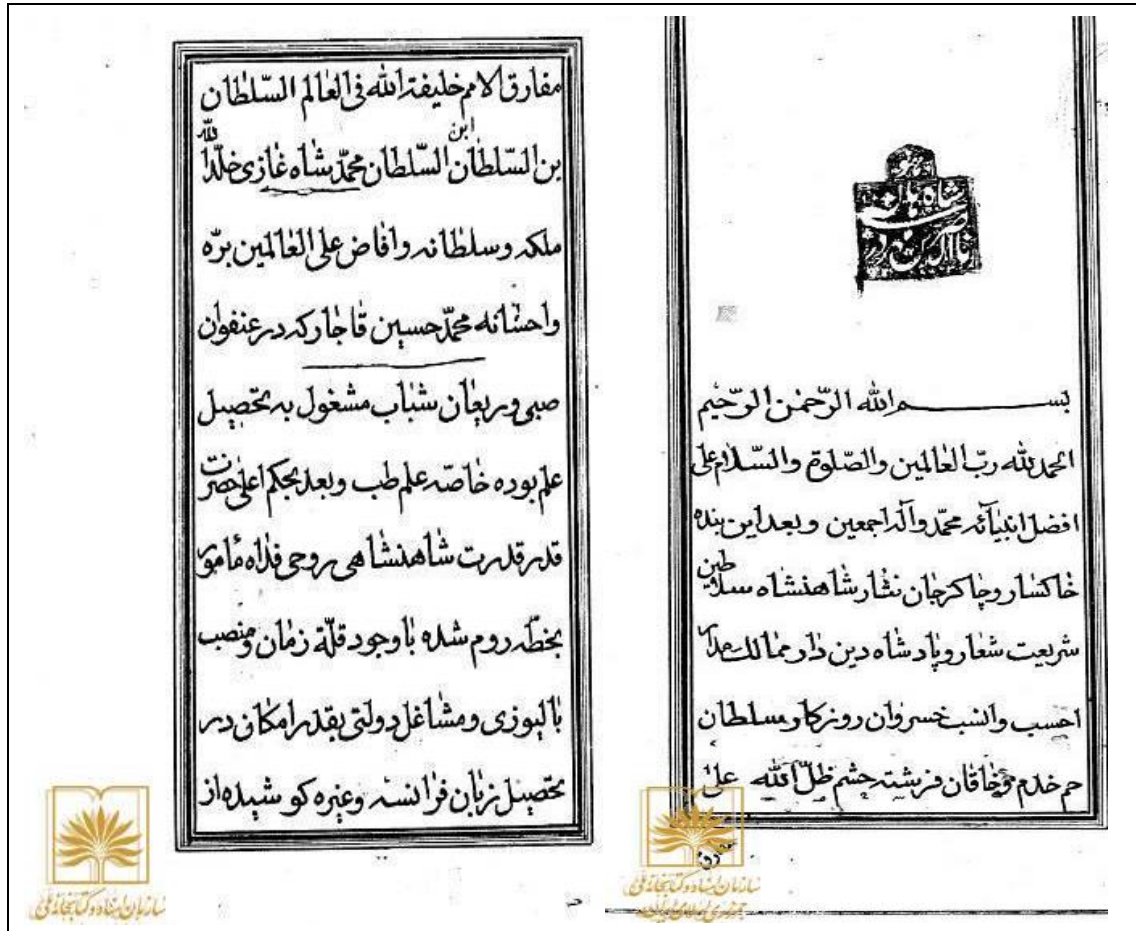 بسم الله الرّحمن الرّحیم
الحمد لله ربّ العالمین والصّلوة والسّلام علی
افضل انبیآئه محمّد وآله اجمعین وبعد این بنده
خاکسار وچاکر جان نثار شاهنشاه سلاطین
شریعت شعار وپادشاه دین دار ممالک مدار
احسب وانسب خسروان روزکار وسلطان
جم خدم وخاقان فرشته حشم ظلّ الله علی
مفارق
مفارق الامم خلیفة الله فی العالم السّلطان
بن السّلطان ابن السّلطان محمّد شاه غازی خلّد الله
ملکه وسلطانه وافاض علی العالمین برّه
واحسانه محمّد حسین قاجار که در عنفوان
صبی وریعان شباب مشغول به تحصیل
علم بوده خاصّه علم طب وبعد بحکم اعلیحضرت
قدر قدرت شاهنشاهی روحی فداه مأمور
بخطّه روم شده باوجود قلّة زمان ومنصب
بالیوزی ومشاغل دولتی بقدر امکان در
تحصیل زبان فرانسه وغیره کوشیده از
سازمان اسناد و کتابخانه ملی
سازمان اسناد و کتابخانه ملی
جمهوری اسلامی ایران